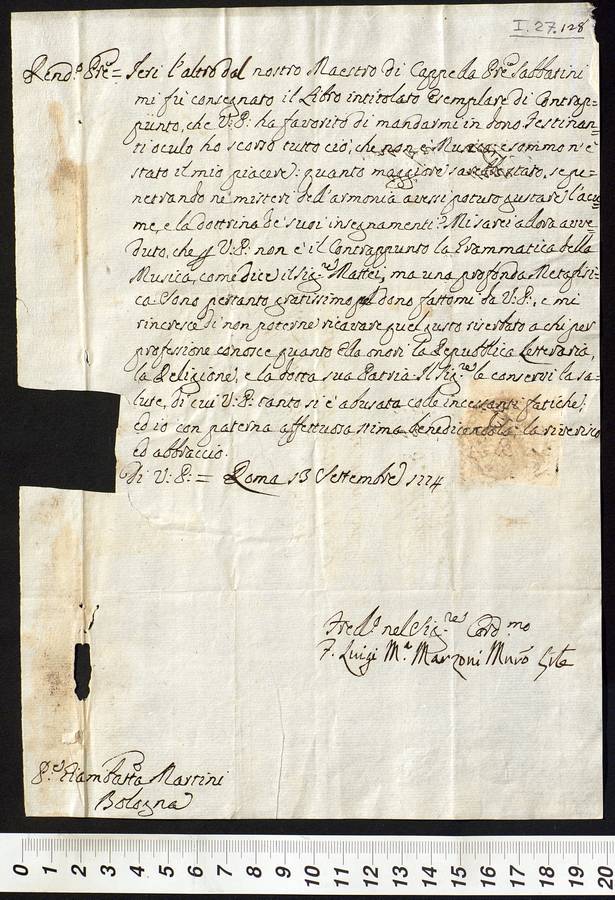 I. 27. 128
Rend.º Pre = Jeri l'altro dal nostro Maestro di Cappella Pre Sabbatini
mi fù consegnato il Libro intitolato Esemplare di Contrap=
punto, che V: P: ha favorito di mandarmi in dono. Festinan=
ti oculo ho scorso tutto ciò, che non è Musica; e sommo n'è
stato il mio piacere: quanto maggiore sarebbe stato, se pe=
netrando ne misterj dell'armonia avessi potuto gustare l'acu=
me, e la dottrina de' suoi insegnamenti? Mi sarei allora avve=
duto, che p V: P: non è il Contrappunto la Grammatica della
Musica, come dice il Sig.re Mattei, ma una profonda Metafisi=
ca. Sono pertanto gratissimo al dono fattomi da V: P:, e mi
rincresce di non poterne ricavare quel gusto riserbato a chi per
professione conosce quanto Ella onori la Repubblica Letteraria,
la Religione, e la dotta sua Patria. Il Sig.re le conservi la sa=
lute, di cui V: P: tanto si è abusata colle incessanti fatiche;
ed io con paterna affettuosissima benedicendola la riverisco
ed abbraccio.
Di V: P: = Roma 13 Settembre 1774
Frello nel Sig.re Cord.mo
F. Luigi M.a Marzoni Mnro Gnle
P.re Giambatta Martini
Bologna
0 1 2 3 4 5 6 7 8 9 10 11 12 13 14 15 16 17 18 19 20